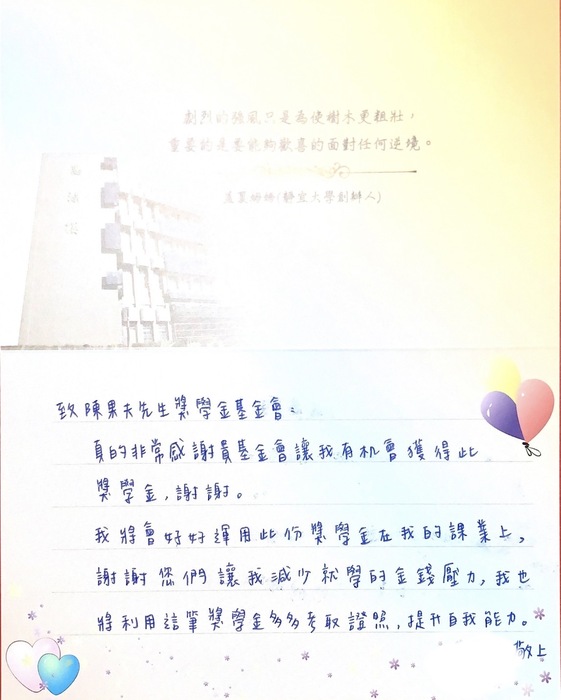 劇烈的強風只是為使樹木更粗壯，
重要的是要能夠歡喜的面對任何逆境。
蓋夏姆姆(靜宜大學創辦人)
致 陳果夫先生獎學金基金會：
真的非常感謝貴基金會讓我有机會獲得此
獎學金，謝謝。
我將會好好運用此份獎學金在我的課業上，
謝謝您們讓我減少就學的金錢壓力，我也
將利用這筆獎學金多多考取證照，提升自我能力。
敬上